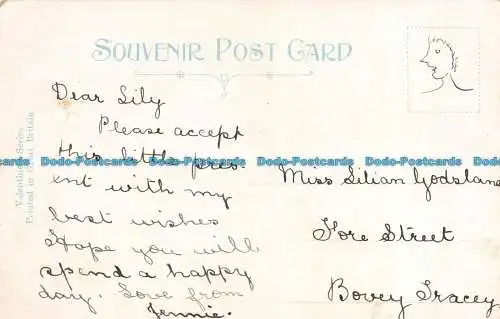 SOUVENIR POST CARD
Valentines Series
Printed in Great Britain
Dear Lily
Please accept
this little pres-
ent with my
best wishes
Hope you will
spend a happy
day. Love from
Jennie.
Miss Lilian Godsland
Fore Street
Bovey Tracey
Dodo-Postcards Dodo-Postcards Dodo-Postcards Dodo-Postcards Dodo-Postcards